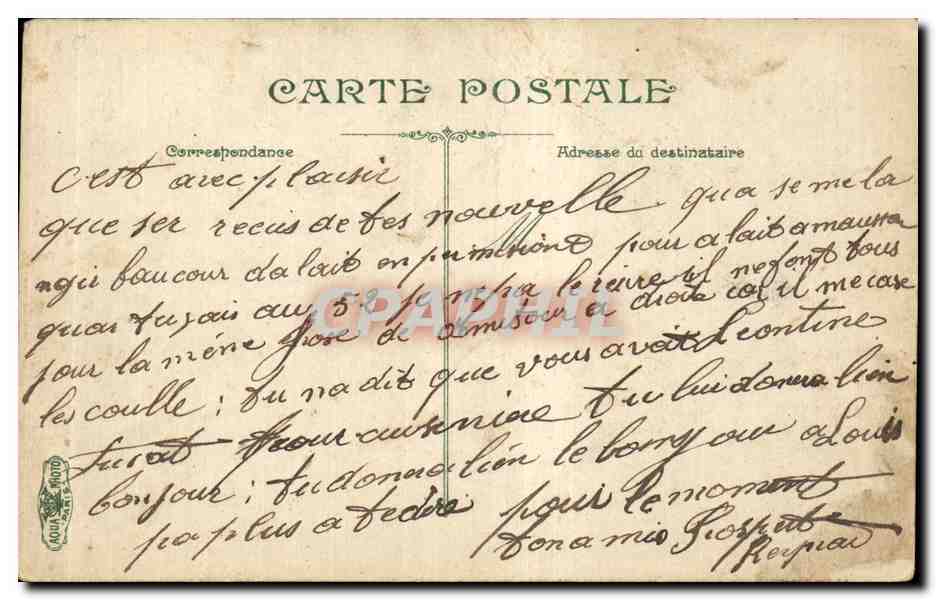 CARTE POSTALE
Correspondance
Adresse du destinataire
C'est avec plaisir
que ser recus de tes nouvelle qua se me la
baucour dalait en permiont pour alait a maussan
quar tu sais au 52 je n pa le reire il ne font tous
pour la même de a droite car il me case
les coulle ; tu na dit que vous avait Leontine
tu lui donnera lien
bonjour ; tu donnera lien le bonjour a Louis
pa plus a te dire pour le moment
ton amis Prosper
AQUA PHOTO
PARIS
CPAPHIL